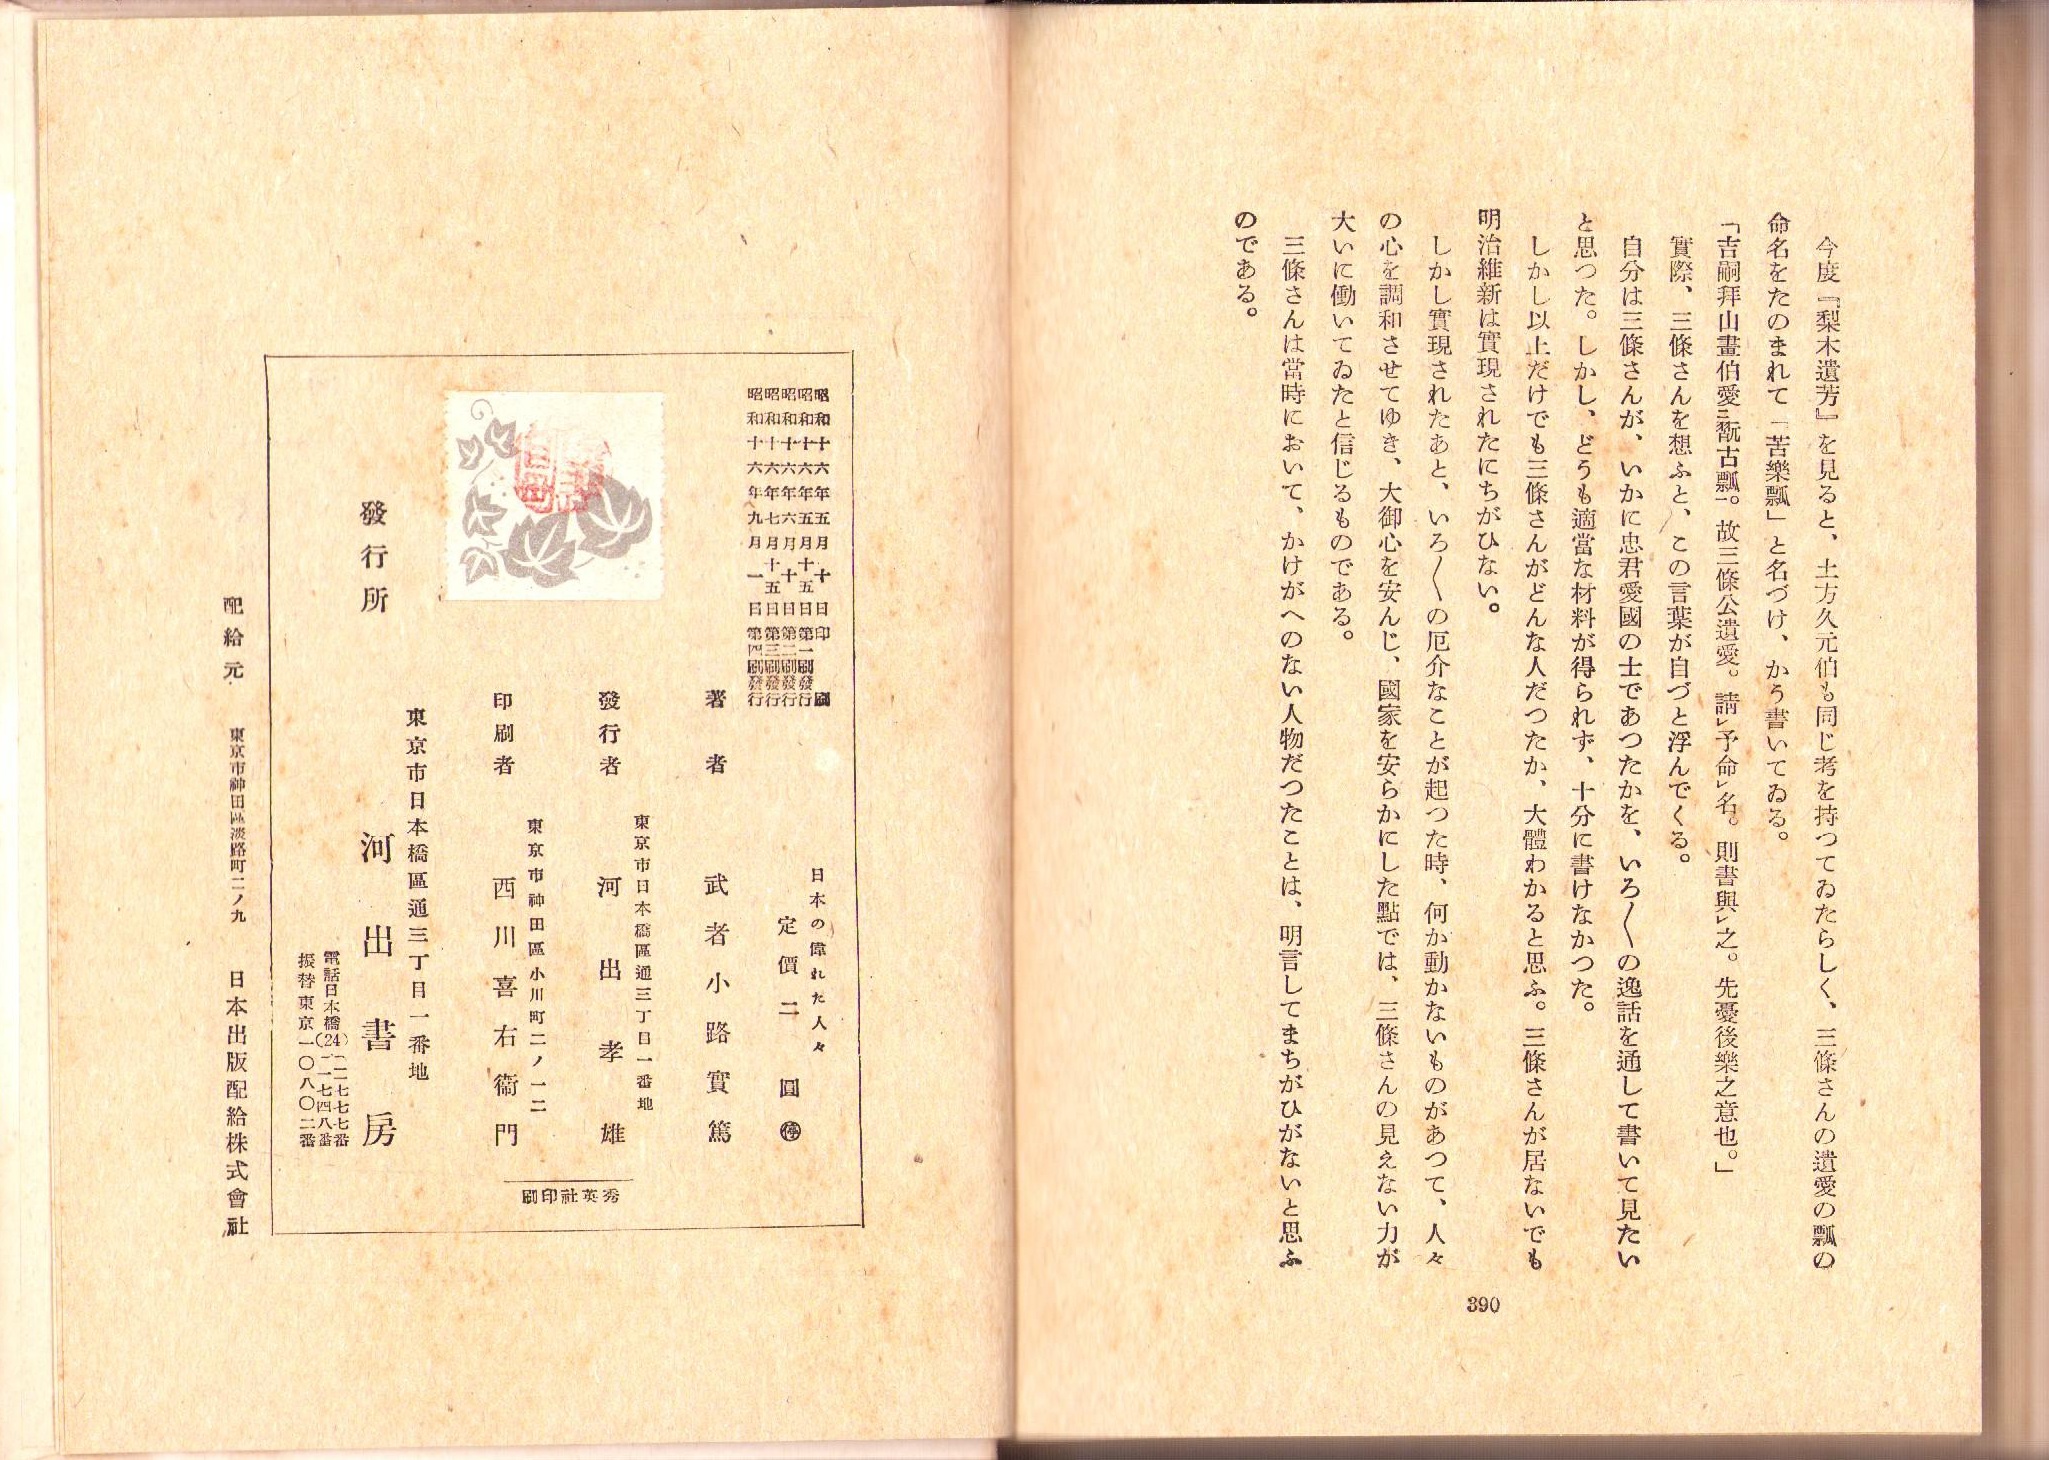 今度『梨木遺芳』を見ると、土方久元伯も同じ考を持つてゐたらしく、三條さんの遺愛の瓢の
命名をたのまれて「苦樂瓢」と名づけ、かう書いてゐる。
「吉嗣拜山畫伯愛ニ翫古瓢一。故三條公遺愛。請レ予命レ名。則書與レ之。先憂後樂之意也。」
實際、三條さんを想ふと、この言葉が自づと浮んでくる。
自分は三條さんが、いかに忠君愛國の士であつたかを、いろ〳〵の逸話を通して書いて見たい
と思つた。しかし、どうも適當な材料が得られず、十分に書けなかつた。
しかし以上だけでも三條さんがどんな人だつたか、大體わかると思ふ。三條さんが居ないでも
明治維新は實現されたにちがひない。
しかし實現されたあと、いろ〳〵の厄介なことが起つた時、何か動かないものがあつて、人々
の心を調和させてゆき、大御心を安んじ、國家を安らかにした點では、三條さんの見えない力が
大いに働いてゐたと信じるものである。
三條さんは當時において、かけがへのない人物だつたことは、明言してまちがひがないと思ふ
のである。
390
昭和十六年五月十日印刷
昭和十六年五月十五日第一刷發行
昭和十六年六月十日第二刷發行
昭和十六年七月十五日第三刷發行
昭和十六年九月一日第四刷發行
日本の偉れた人々
定價二圓㊙停
著者 武者小路實篤
東京市日本橋區通三丁目一番地
發行者 河出孝雄
東京市神田區小川町二ノ一二
印刷者 西川喜右衞門
秀英社印刷
東京市日本橋區通三丁目一番地
發行所 河出書房
電話日本橋(24)
二七七七番
一七四八番
振替東京一〇八〇二番
配給元 東京市神田區淡路町二ノ九 日本出版配給株式會社